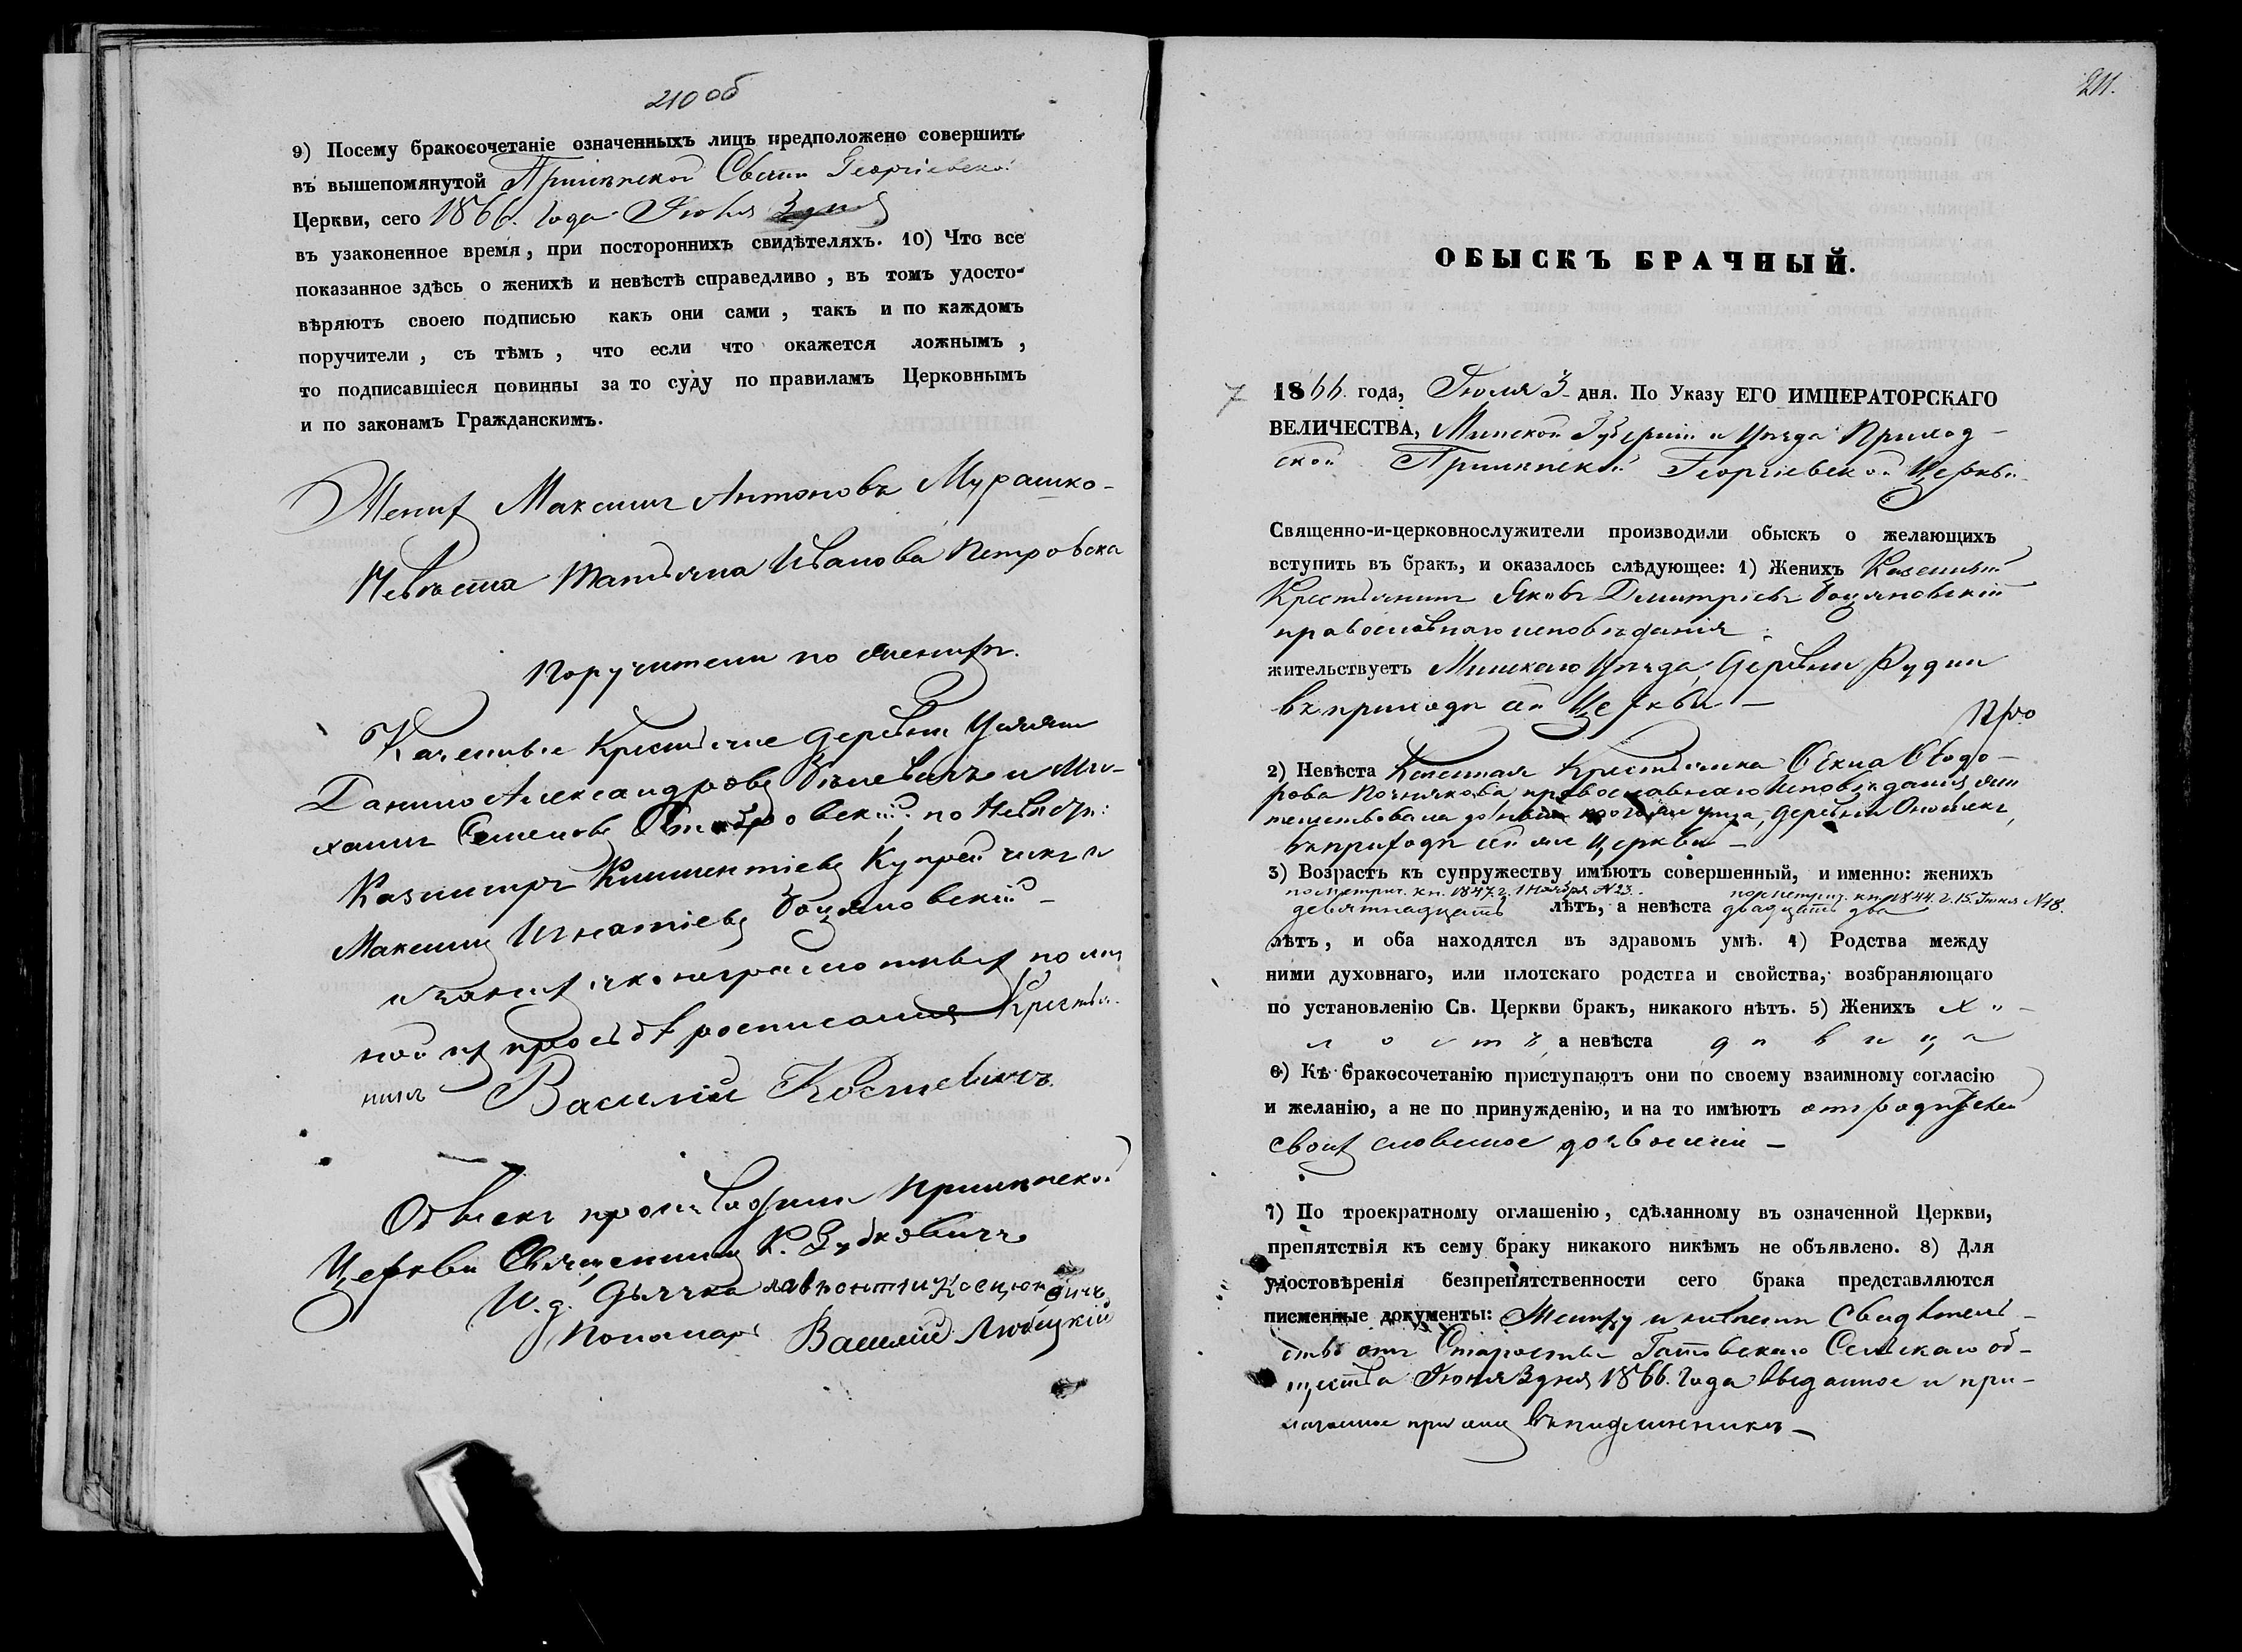 210 об
9) Посему бракосочетаніе означенныхъ лицъ предположено совершить
въ вышепомянутой Прилѣпской Свято Георгіевской
Церкви, сего 1866. года Іюля 3 дня
въ узаконенное время, при постороннихъ свидѣтеляхъ. 10) Что все
показанное здѣсь о женихѣ и невѣстѣ справедливо, въ томъ удосто-
вѣряютъ своею подписью какъ они сами, такъ и по каждомъ
поручители, съ тѣмъ, что если что окажется ложнымъ,
то подписавшіеся повинны за то суду по правиламъ Церковнымъ
и по законамъ Гражданскимъ.
Женихъ Максимъ Антоновъ Мурашко-
Невѣста Татьяна Иванова Петровска
Поручители по женихѣ.
Казенные Крестьяне деревни
Данило Александровъ и Ми-
хаилъ Семеновъ по Невѣстѣ:
Казимиръ Климентіевъ Купрейчикъ и
Максимъ Игнатіевъ Боцяновскій -
а за нихъ яко неграмотныхъ по лич
ной ихъ просьбѣ росписался Крестья-
нинъ Василій Костевичъ.
Обыскъ производили Прилѣпской
Церкви Священникъ К. Зубковичъ
И. д. Дьячка
Пономарь Василій Любецкій
211.
ОБЫСКЪ БРАЧНЫЙ.
7 1866. года, Іюля 3 дня. По Указу ЕГО ИМПЕРАТОРСКАГО
ВЕЛИЧЕСТВА, Минской Губерніи и Уѣзда Приход-
ской Прилѣпской Георгіевской Церкви
Священно-и-церковнослужители производили обыскъ о желающихъ
вступить въ бракъ, и оказалось слѣдующее: 1) Женихъ Казенный
Крестьянинъ Яковъ Димитріевъ Боцяновскій
православнаго исповѣданія
жительствуетъ Минскаго Уѣзда, деревни Рудни
въ приходѣ сей Церкви —
2) Невѣста Казенная Крестьянка Ѳекла Ѳеодо-
рова Познякова православнаго Исповѣданія, жи
тельствовала до нынѣ того же уѣзда, деревни
въ приходѣ сей же Церкви —
3) Возрастъ къ супружеству имѣютъ совершенный, и именно: женихъ
по метрич. кн. 1847. г. 1 Ноября №23. по метрич. кн. 1844. г. 15. Іюня №18.
девятнадцать лѣтъ, а невѣста двадцать два
лѣтъ, и оба находятся въ здравомъ умѣ. 4) Родства между
ними духовнаго, или плотскаго родства и свойства, возбраняющаго
по установленію Св. Церкви бракъ, никакого нѣтъ. 5) Женихъ хо-
лостъ, а невѣста дѣвица
6) Къ бракосочетанію приступаютъ они по своему взаимному согласію
и желанію, а не по принужденію, и на то имѣютъ отъ родителей
своихъ словесное дозволеніе —
7) По троекратному оглашенію, сдѣланному въ означенной Церкви,
препятствія къ сему браку никакого никѣмъ не объявлено. 8) Для
удостовѣренія безпрепятственности сего брака представляются
писменные документы: Жениху и невѣстѣ Свидѣтель-
ство отъ Старосты Гатовскаго Сельскаго об-
щества Іюня 3 дня 1866. года выданное и при-
лагаемое при семъ въ подлинникѣ —